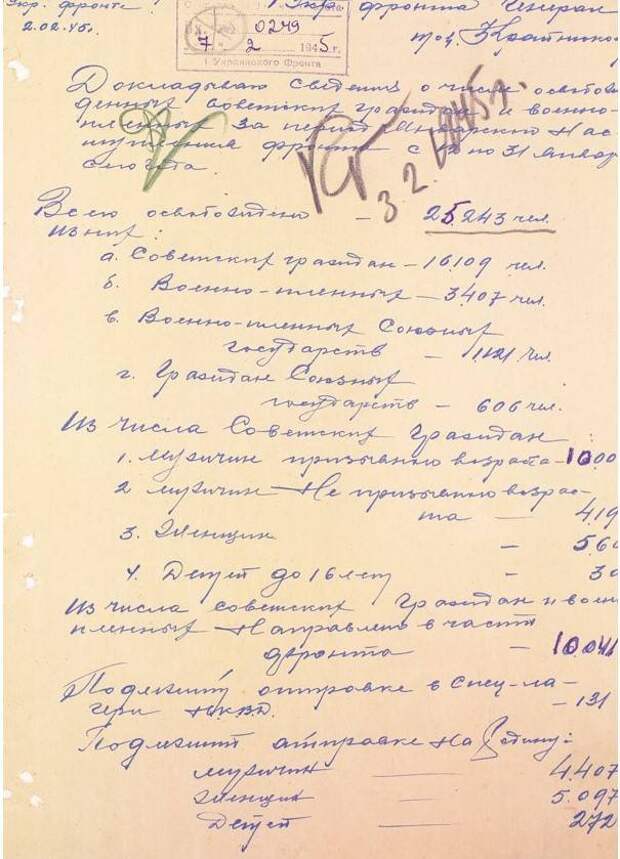 Укр. фронте
1 Укр. фронта Генерал
2.02.45г.
тов. Крайнико
0249
7 2 1945 г.
1 Украинского Фронта
Докладываю сведения о числе освобо
жденных советских граждан и военно-
пленных за период Январского Нас-
тупления фронта с 12 по 31 Январ
сего года.
Всего освобождено — 25.243 чел.
из них:
а. Советских граждан — 16.109 чел.
б. Военно-пленных — 3407 чел.
в. Военно-пленных Союзных
государств — 1121 чел.
г. Граждан Союзных
государств — 606 чел.
Из числа Советских Граждан:
1. мужчин призывного возраста — 10.00
2 мужчин Не призывного возрас-
та — 419
3. Женщин — 5.6
4. Детей до 16 лет — 30
Из числа советских Граждан и воен
пленных Направлено в части
фронта — 10.041
Подлежит отправке в спец-ла-
гери НКВД. — 131
Подлежит отправке на Родину:
мужчин — 4.407
женщин — 5.097
Детей — 272